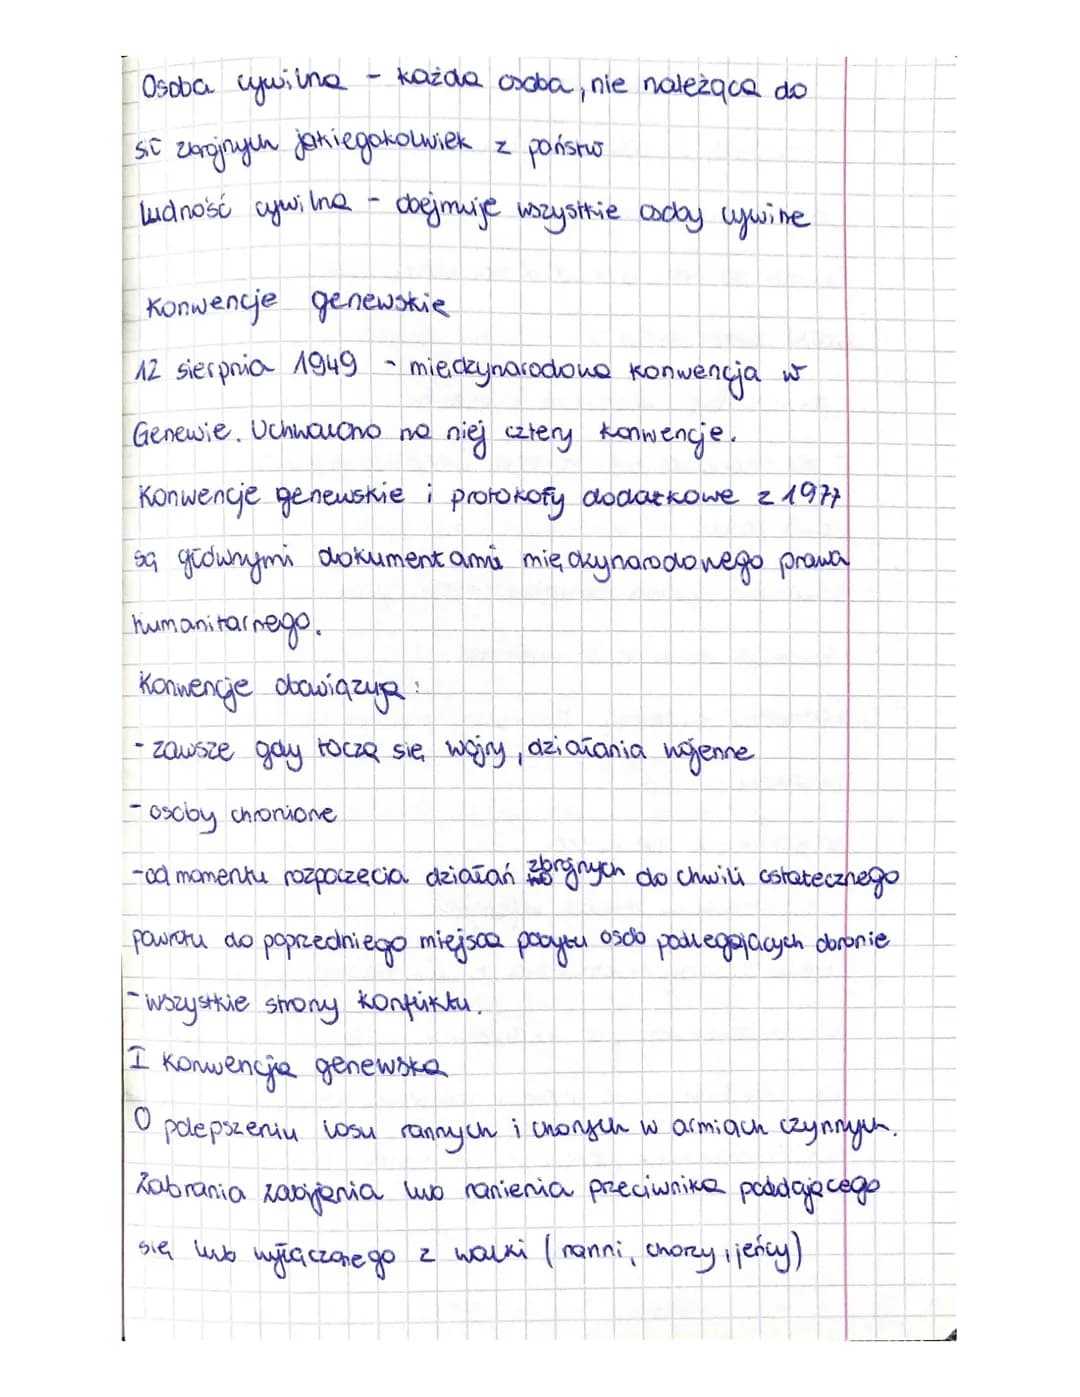 Osoba cywilna - każda osoba, nie należąca do
sił zbrojnych jakiegokolwiek z państw
Ludność cywilna - obejmuje wszystkie osoby cywilne
Konwencje genewskie
12 sierpnia 1949 - międzynarodowa konwencja w
Genewie. Uchwalono na niej cztery konwencje.
Konwencje genewskie i protokoły dodatkowe z 1977
są głównymi dokumentami międzynarodowego prawa
humanitarnego.
Konwencje obowiązują :
- zawsze gdy toczą się wojny, działania wojenne
- osoby chronione
- od momentu rozpoczęcia działań zbrojnych do chwili ostatecznego
powrotu do poprzedniego miejsca pobytu osób podlegających obronie
- wszystkie strony konfliktu.
I Konwencja genewska
O polepszeniu losu rannych i chorych w armiach czynnych.
Zabrania zabijania lub ranienia przeciwnika poddającego
się lub wyłączonego z walki (ranni, chorzy, jeńcy)